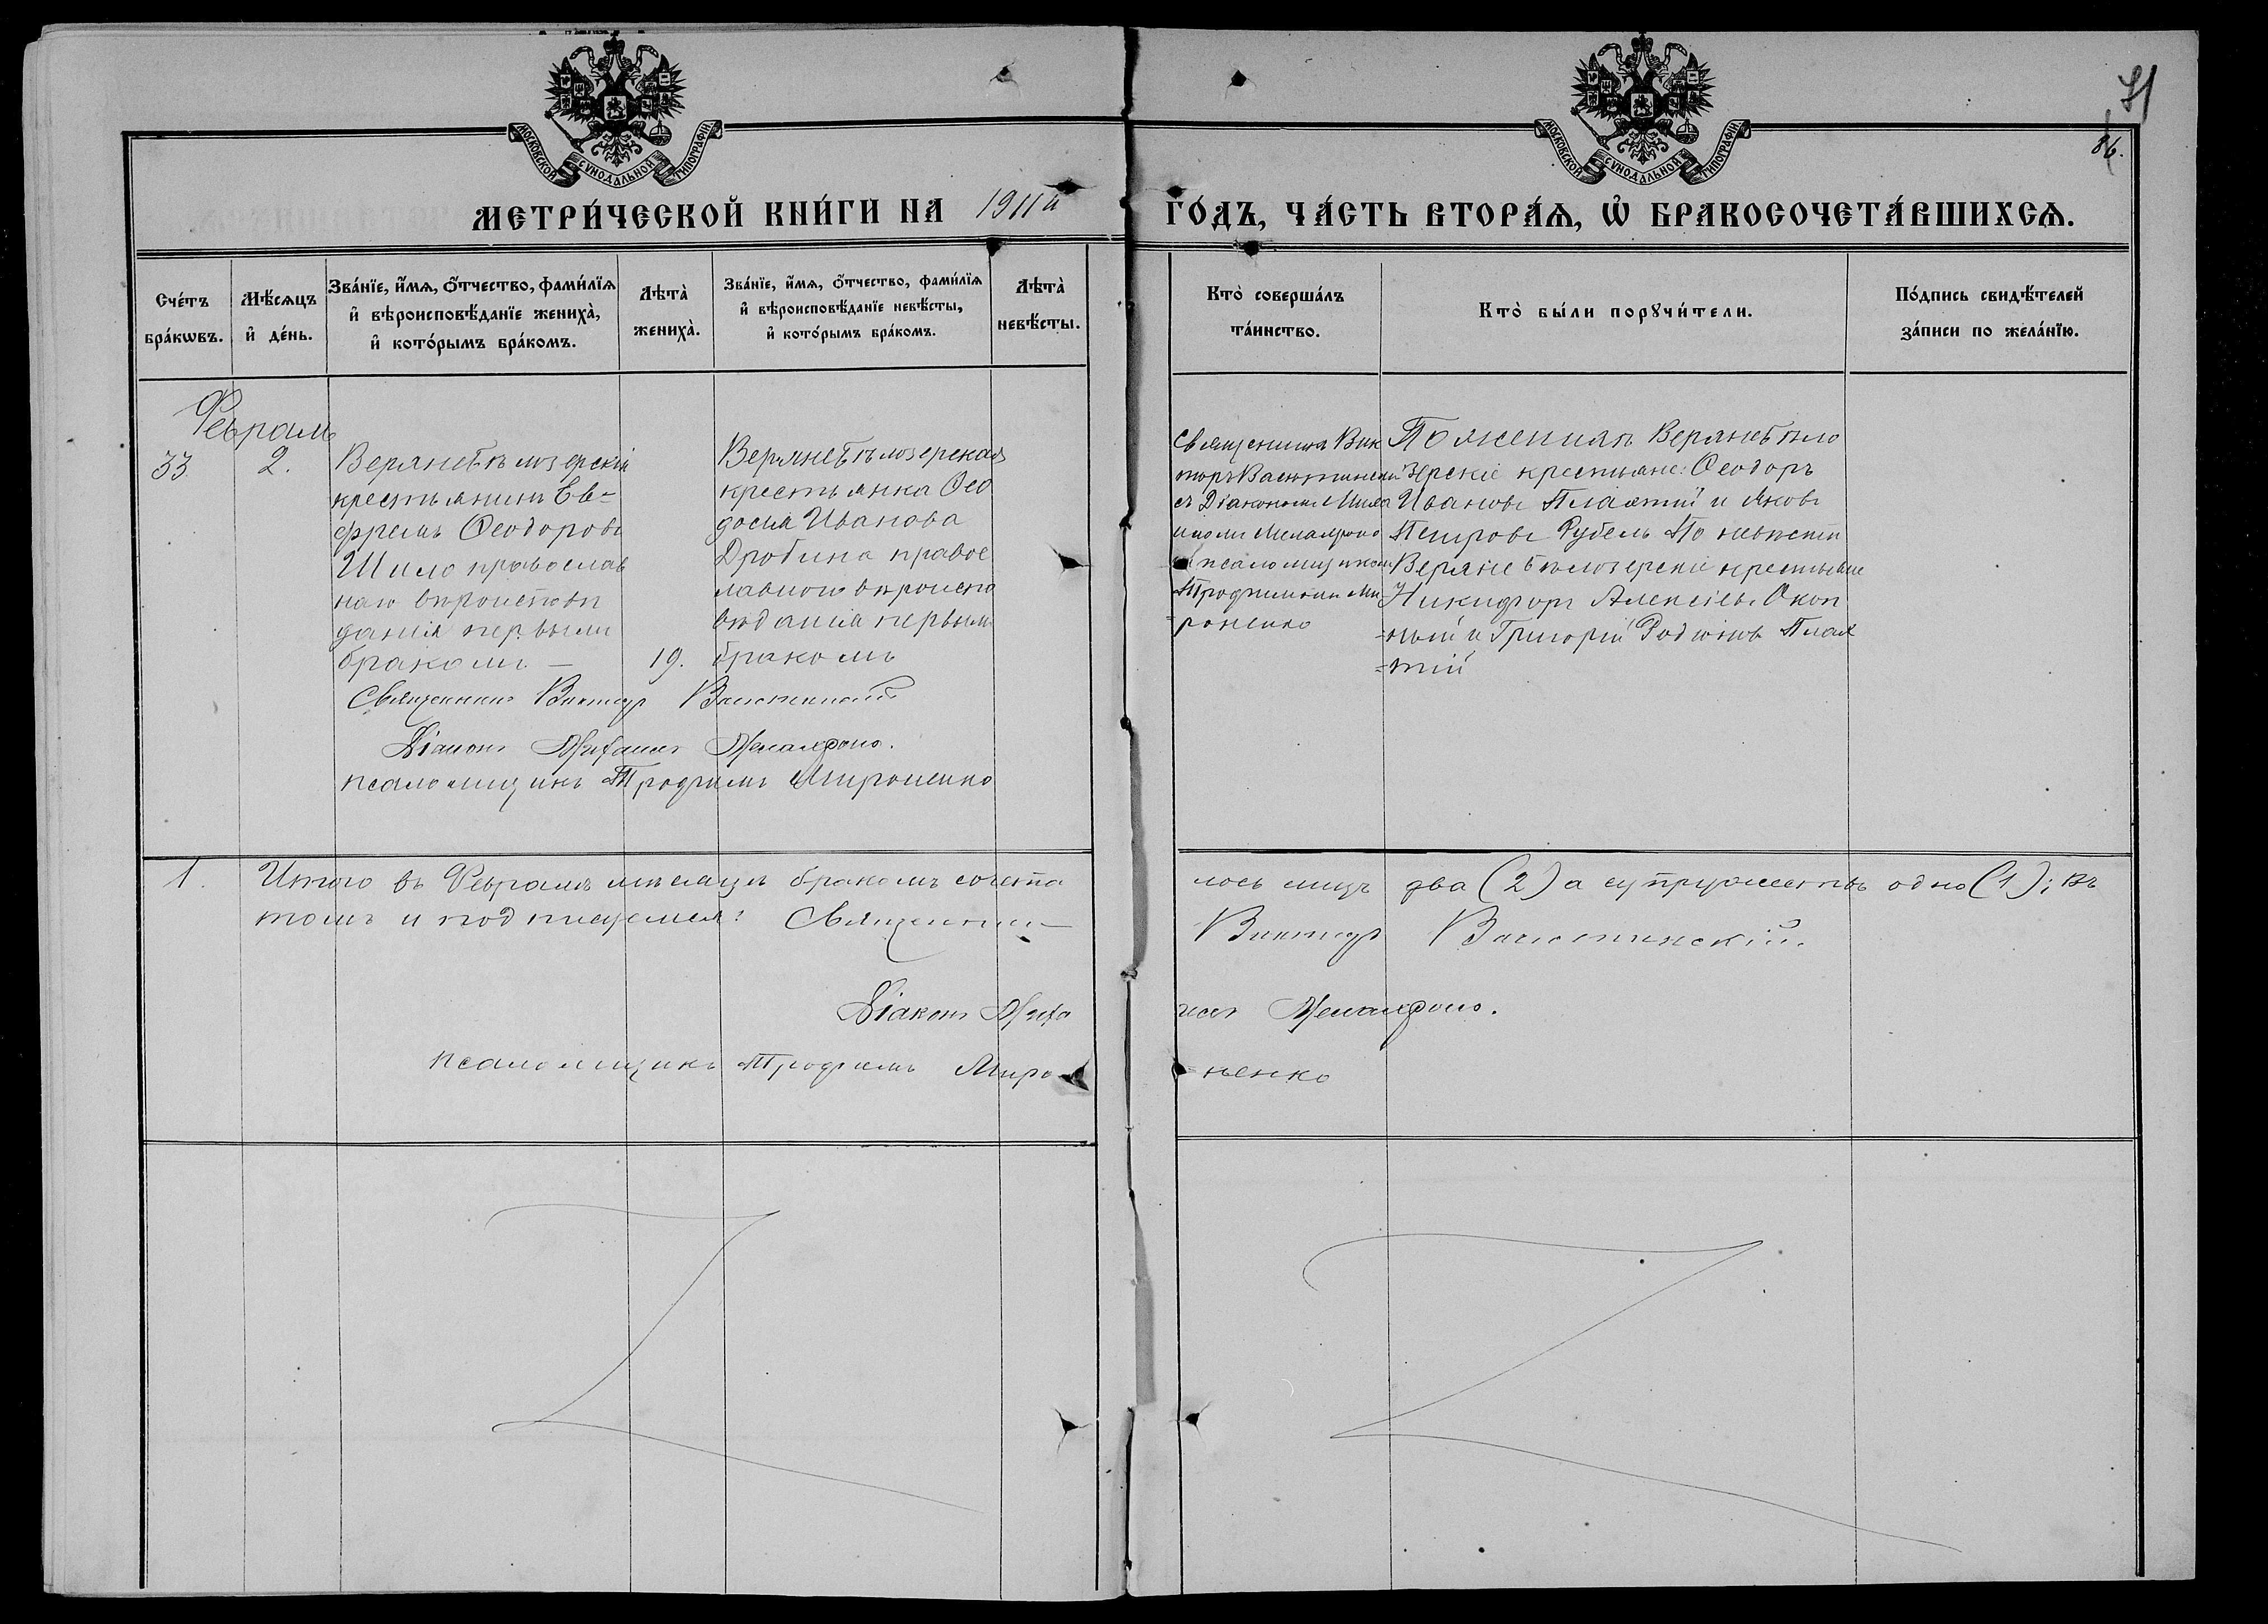 91
86.
МОСКОВСКОЙ СѴНОДАЛЬНОЙ ТИПОГРАФІИ
МОСКОВСКОЙ СѴНОДАЛЬНОЙ ТИПОГРАФІИ
МЕТРИ́ЧЕСКОЙ КНИ́ГИ НА 1911й ГО́ДЪ, ЧА́СТЬ ВТОРА́Ѧ, Ѡ БРАКОСОЧЕТА́ВШИХСѦ.
Сче́тъ
бра́кѡвъ.
Мѣ́сѧцъ
и҆ де́нь.
Зва́нїе, и҆́мѧ, ѻ҆́тчество, фами́лїѧ
и҆ вѣроисповѣ́данїе жениха̀,
и҆ кото́рымъ бра́комъ.
Лѣта̀
жениха̀.
Зва́нїе, и҆́мѧ, ѻ҆́тчество, фами́лїѧ
и҆ вѣроисповѣ́данїе невѣ́сты,
и҆ кото́рымъ бра́комъ.
Лѣта̀
невѣ́сты.
Кто̀ соверша́лъ
та́инство.
Кто̀ бы́ли порꙋчи́тели.
По́дпись свидѣ́телей
за́писи по жела́нїю.
Февраль
33
2.
Верхнебѣлозерскій
крестьянинъ Ев=
фремъ Ѳеодоровъ
Шило православ
наго вѣроисповѣ
данія первымъ
бракомъ —
19.
Верхнебѣлозерская
крестьянка Ѳео
досія Иванова
Дробина правос
лавного вѣроиспо
вѣданія первымъ
бракомъ
Священникъ Вик
торъ Васютинскій
съ Діакономъ Миха
иломъ
и псаломщикомъ
Трофимомъ Ми
=роненко
По женихѣ Верхнебѣло
зерскіе крестьяне: Ѳеодоръ
Ивановъ Плахтій и Яковъ
Петровъ Рубель По невѣстѣ
Верхнебѣлозерскіе крестьяне
Никифоръ Алексіевъ Окоп
=ный и Григорій Родіоновъ Плах
=тій
Священникъ Викторъ Васютинскій
Діаконъ Михаилъ
псаломщикъ Трофимъ Мироненко
1. Итого въ Февралѣ мѣсяцѣ бракомъ сочета
лось лицъ два (2) а супружествъ одно (1); въ
томъ и подписуемся: Священникъ
Викторъ Васютинскій.
Діаконъ Миха
илъ
псаломщикъ Трофимъ Миро=
=ненко